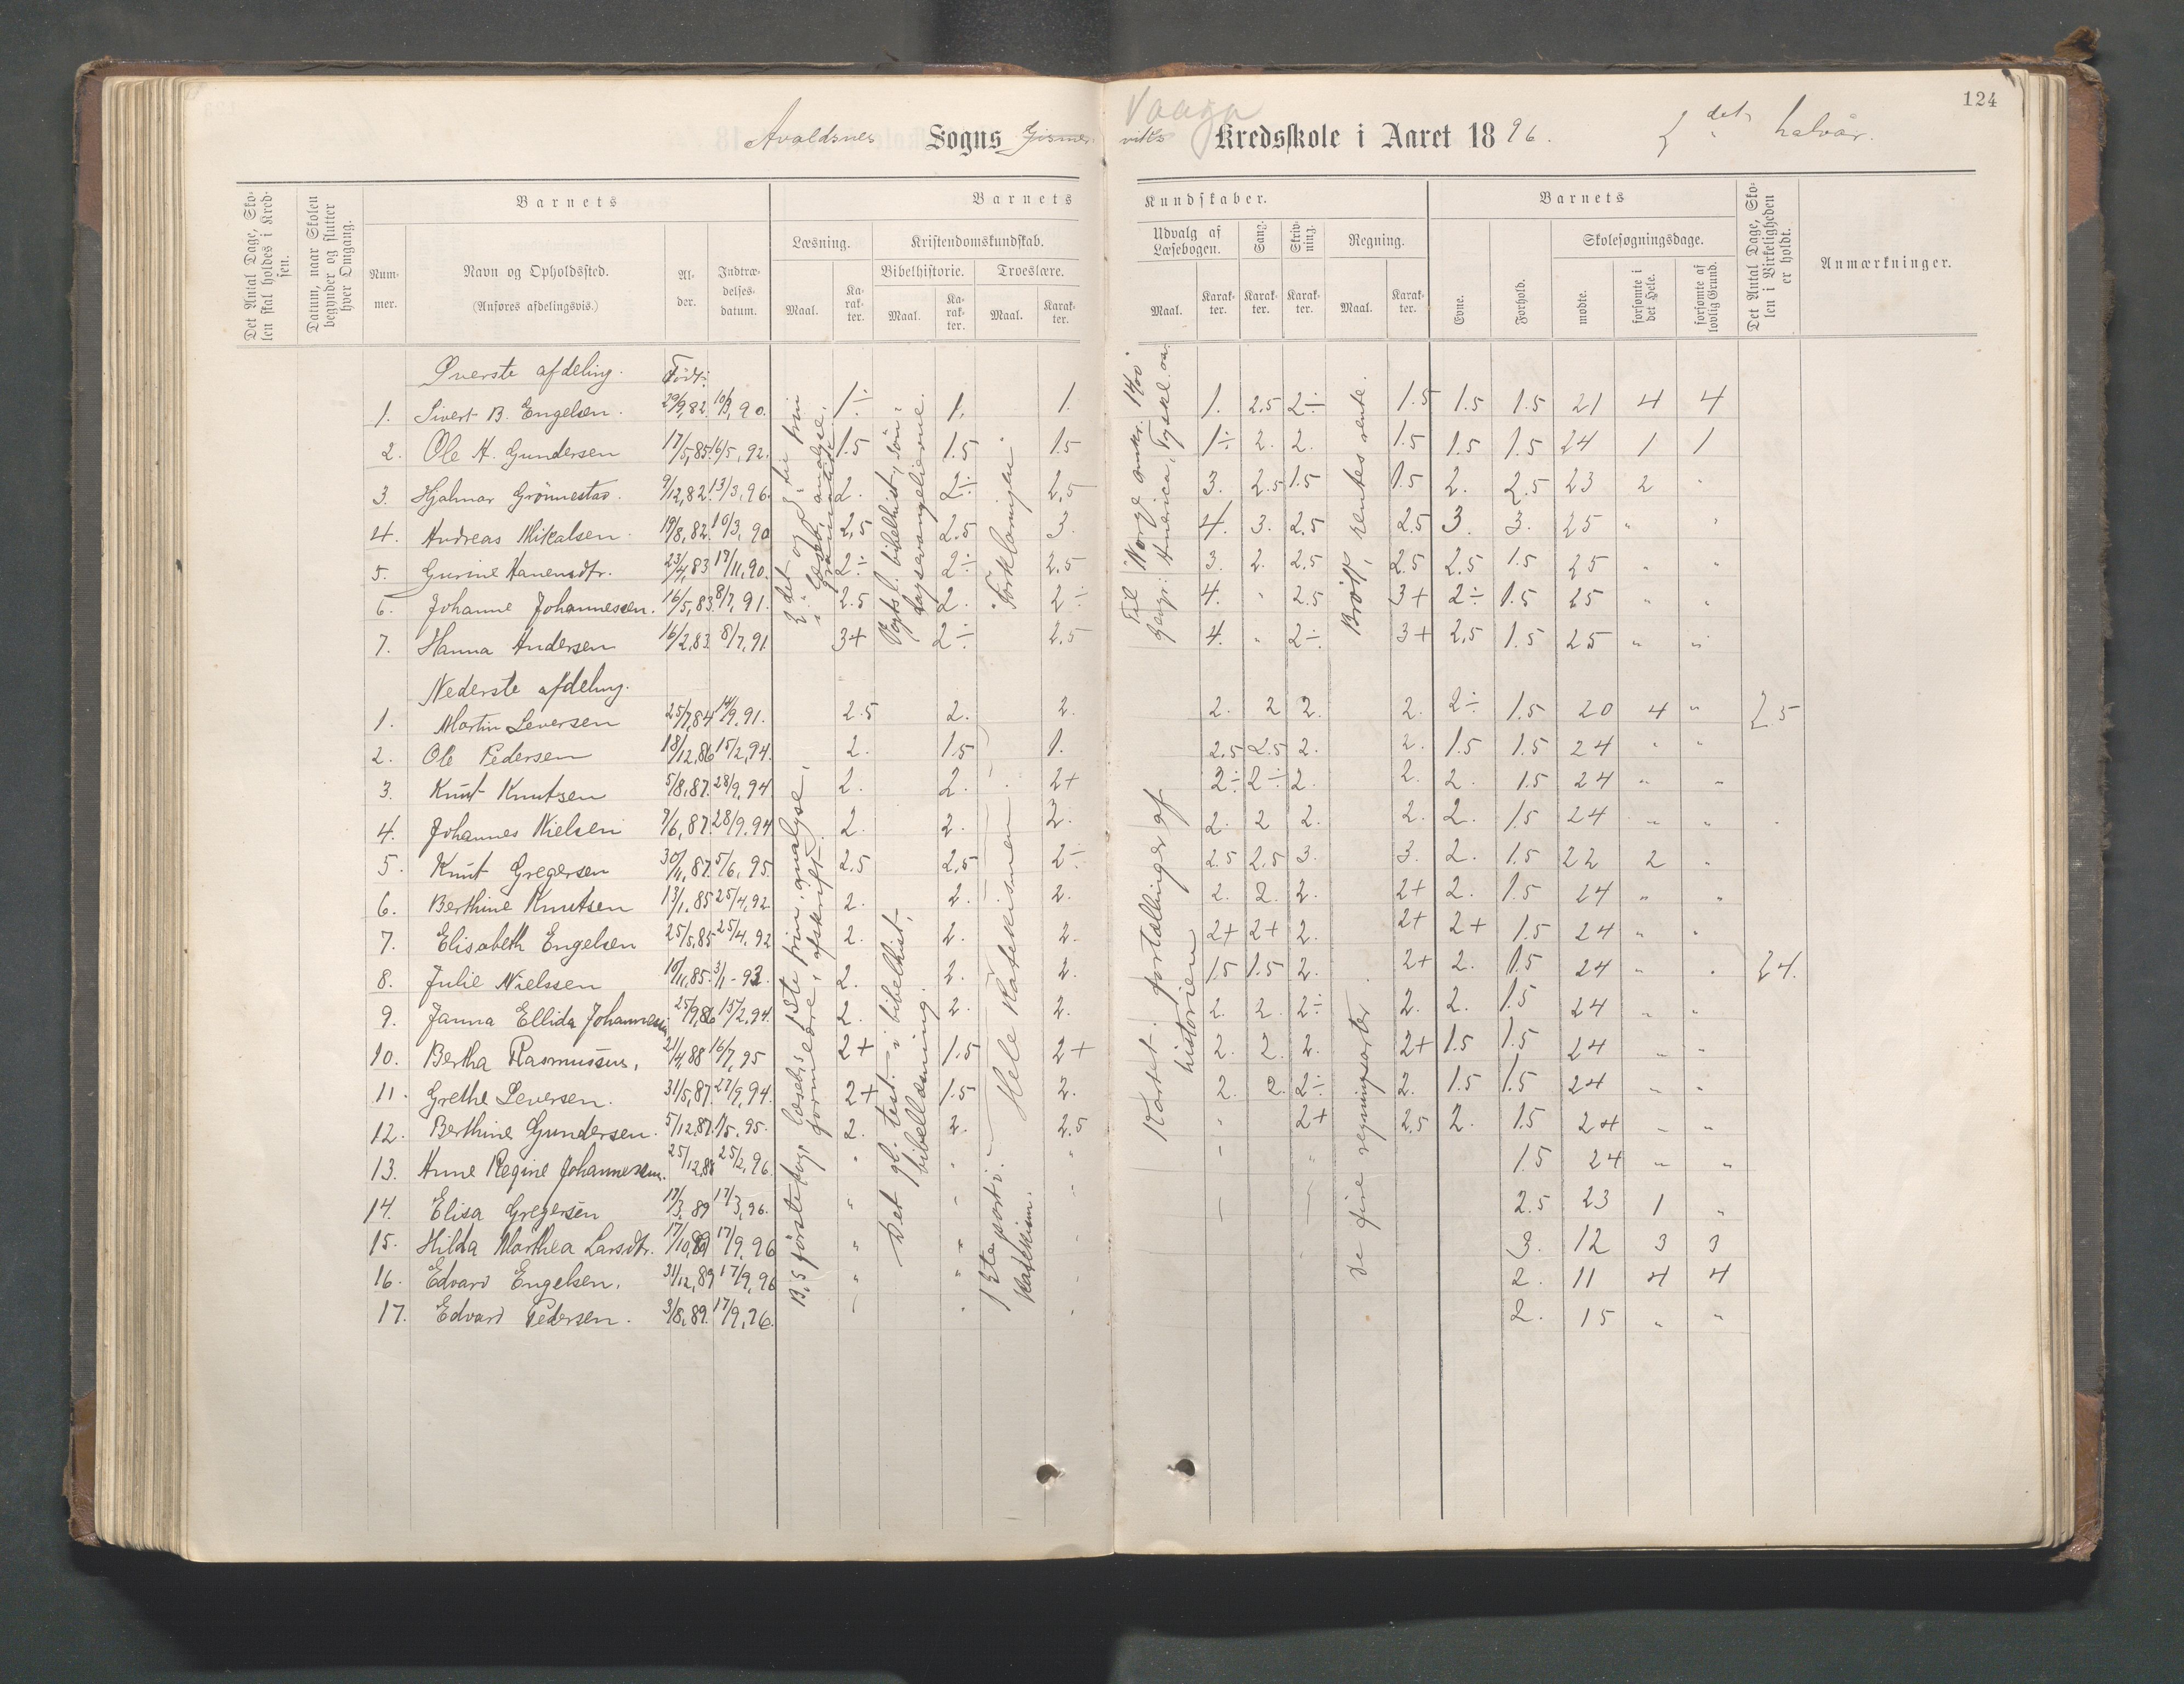 124
Vaaga
Avaldsnes Sogns Gismer viks Kredsskole i Aaret 1896. 2det halvår.
Det Antal Dage, Skolen skal holdes i Kredsen.
Datum, naar Skolen begynder og slutter hver Omgang.
Barnets
Barnets Kundskaber.
Barnets
Det Antal Dage, Skolen i Virkeligheden er holdt.
Anmærkninger.
Nummer.
Navn og Opholdssted.
(Anføres afdelingsvis.)
Alder.
Indtrædelsesdatum.
Læsning.
Kristendomskundskab.
Bibelhistorie.
Troeslære.
Udvalg af Læsebogen.
Sang.
Skrivning.
Regning.
Evne.
Forhold.
Skolesøgningsdage.
Maal. Karakter. Maal. Karakter. Maal. Karakter. Maal. Karakter. Karakter. Karakter. Maal. Karakter.
mødte. forsømte i det Hele. forsømte af lovlig Grund.
Øverste afdeling. Født:
1. Sivert B. Engelsen. 29/9,82. 10/3,90. 1÷ 1. 1. 1. 2.5 2÷ 1.5 1.5 1.5 21 4 4
2. Ole A. Gundersen 17/5,85. 16/5,92. 1.5 1.5 1.5 1÷ 2. 2. 1.5 1.5 1.5 24 1 1
3. Hjalmar Grönnestad. 9/12,82. 13/3,96. 2. 2÷ 2,5 3. 2.5 1.5 1.5 2. 2.5 23 2 "
4. Andreas Mikalsen. 19/8,82. 10/3,90 2,5 2.5 3. 4. 3. 2.5 2.5 3. 3. 25 " "
5. Gurine Hansensdtr. 23/4,83 17/11,90. 2÷ 2÷ 2.5 3. 2. 2.5 2.5 2.5 1.5 25 " "
6. Johanne Johannessen. 16/5,83. 8/7,91. 2.5 2. 2÷ 4. " 2.5 3+ 2÷ 1.5 25 " "
7. Hanna Andersen 16/2,83. 8/7,91. 3+ 2÷ 2.5 4. " 2÷ 3+ 2,5 1.5 25 " "
Nederste afdeling.
1. Martin Leversen 25/7,84 14/9,91. 2.5 2. 2. 2. 2 2. 2. 2÷ 1.5 20 4 " 25
2. Ole Pedersen 18/12,86 15/2,94. 2. 1.5 1. 2.5 2.5 2. 2. 1.5 1.5 24 " "
3. Knut Knutsen 5/8,87. 28/9,94 2. 2. 2+ 2÷ 2÷ 2. 2. 2. 1.5 24 " "
4. Johannes Nielsen 7/6,87. 28/9,94 2. 2. 2. 2. 2 2. 2. 2. 1.5 24 " "
5. Knut Gregersen 30/11,87. 5/6,95. 2.5 2,5 2÷ 2.5 2,5 3. 3. 2. 1.5 22 2 "
6. Berthine Knutsen 13/1,85 25/4,92. 2. 2. 2. 2. 2. 2. 2+ 2. 1.5 24 " "
7. Elisabeth Engelsen 25/5,85 25/4,92 2. 2. 2. 2+ 2+ 2. 2+ 2+ 1.5 24 " "
8. Julie Nielssen 10/11,85. 3/1-93. 2. 2. 2. 1.5 1.5 2. 2+ 2. 1.5 24 " " 24.
9. Janna Ellida Johannessen 25/9,86 15/2,94. 2. 2. 2. 2. 2. 2÷ 2. 2. 1.5 24 " "
10. Bertha Rasmussen, 21/4,88 16/7,95 2+ 1.5 2+ 2. 2. 2. 2+ 1.5 1.5 24 " "
11. Grethe Leversen. 31/5,87. 27/9,94. 2+ 1.5 2. 2. 2. 2÷ 2. 1.5 1.5 24 " "
12. Berthine Gundersen. 5/12,87. 1/5,95. 2. 2. 2.5 " 2+ 2.5 2. 1.5 24 " "
13. Anne Regine Johannessen. 25/12,88 25/2,96. " " " " " 1.5 24 " "
14. Elisa Gregersen 17/3,89 17/3,96. " " " 2.5 23 1 "
15. Hilda Marthea Larsdtr. 17/10,89 17/9,96 " " " 3. 12 3 3
16. Edvard Engelsen. 31/12,89 17/9,96 " " " 2. 11 4 4
17. Edvard Pedersen. 3/8,89. 17/9,96. " " " 2. 15 " "
2det og 3die trin i læseb., analyse.
Vogts l. bibelhist., søn- dagsevangelierne.
Forklaringen.
Til Norge omkr. 1400
Geogr: Amerika, Tyskl. oa.
Brök, rentes rente.
B, S förste bog, læseb.s 1ste trin, analyse,
formlære, afskrift.
Det gl. test. i bibelhist.,
bibellæsning.
1ste parti.
Katekism.
Hele Katekismen
Kortet. fortællinger af
historien
De fire regningsarter